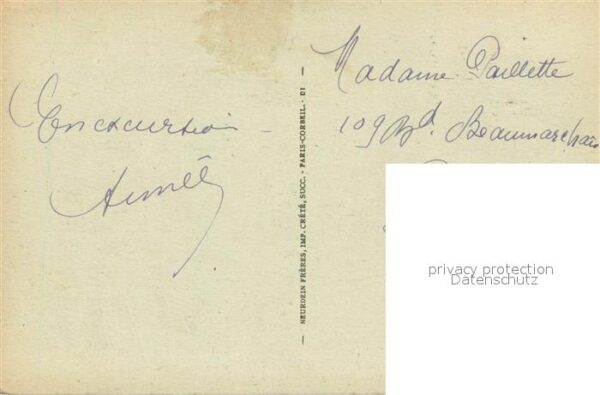 En excursion -
Aimée
— NEURDEIN FRÈRES, IMP. CRÉTÉ, SUCC. - PARIS-CORBEIL. - DI —
Madame Paillette
109 Bd. Beaumarchais
privacy protection
Datenschutz